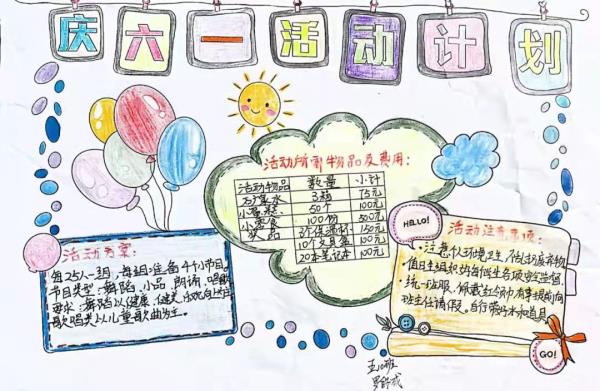 庆六一活动计划
活动所需物品及费用:
活动物品 数量 小计
矿泉水 3箱 75元
小蛋糕 50个 100元
100份 500元
奖品 3个保温杯 150元
10个文具盒 100元
20本笔记本 100元
活动方案:
每25人一组,每组准备4个小节目。
节目类型:舞蹈、小品、朗诵、唱歌
要求:舞蹈以健康、健美、欢向上
歌唱类以儿童歌曲为主。
HELLO!
活动注意事项:
·注意个人环境卫生,不乱扔废弃物
值日生组织协每做生各项安监督
·统一班服、佩戴红领巾有事提前向
班主任请假。自行带好水和道具
GO!
五
罗舒